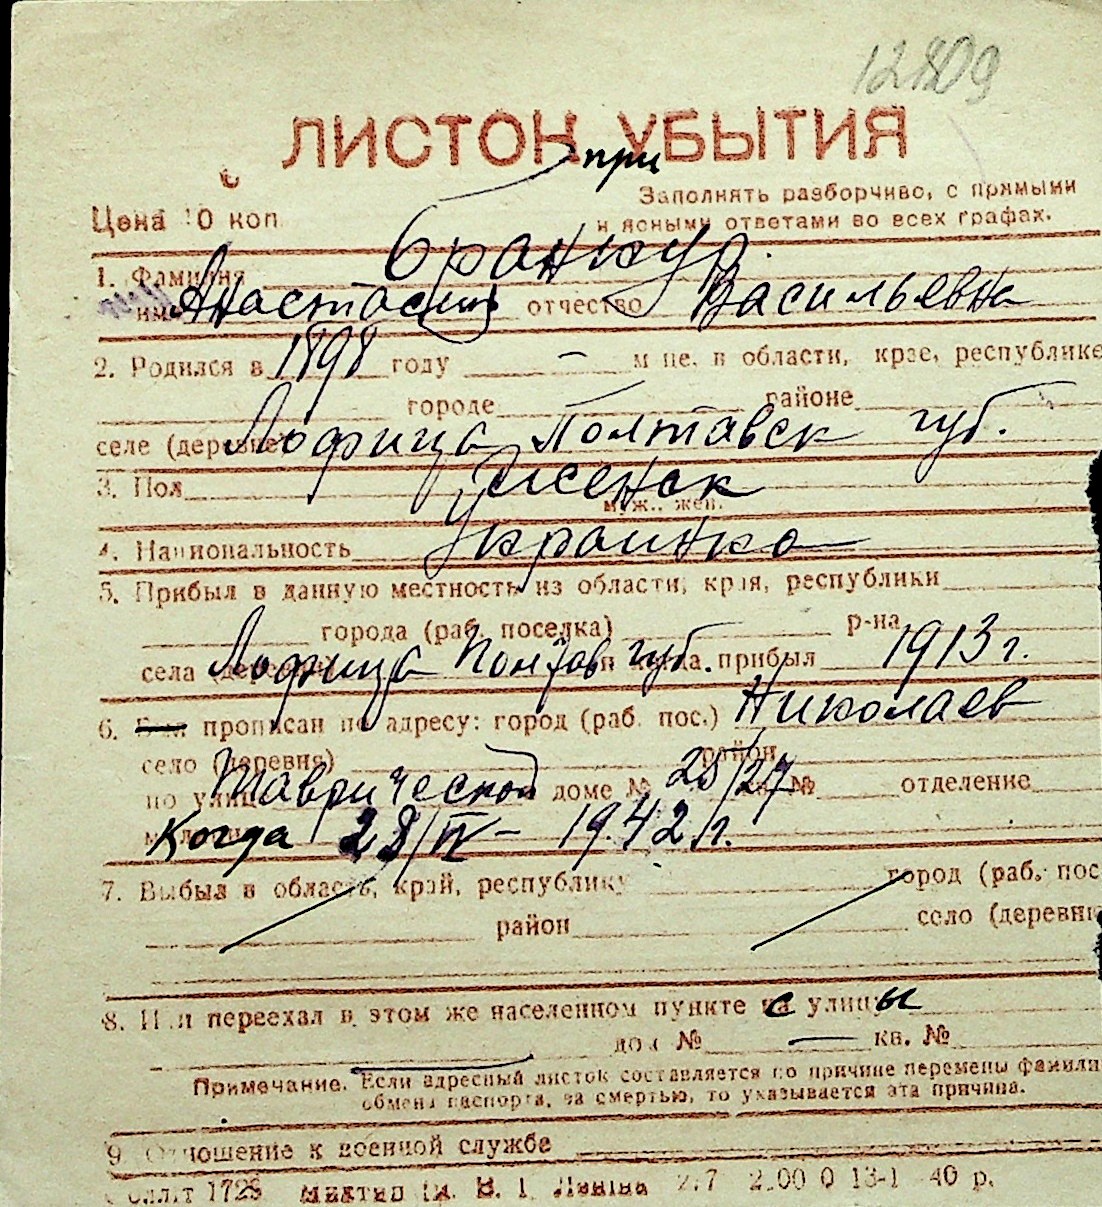 12809
ЛИСТОК УБЫТИЯ
при
Заполнять разборчиво, с прямыми
Цена 10 коп.
и ясными ответами во всех графах.
1. Фамилия Бранкур.
имя Анастасия отчество Васильевна
2. Родился в 1898 году — м-це, в области, крае, республике
городе районе
селе (деревне) Лофица Полтавск губ.
3. Пол женск
муж., жен.
4. Национальность Украинка
5. Прибыл в данную местность из области, края, республики
города (раб. поселка) р-на
села Лофица Полтав губ. прибыл 1913 г.
6. прописан по адресу: город (раб. пос.) Николаев
село (деревня) район
по улице Таврической доме № 25/27 кв. № отделение
Когда 28/IV – 1942 г.
7. Выбыл в область, край, республику город (раб. пос
район село (деревня
8. Или переехал в этом же населенном пункте с улицы
дом № — кв. №
Примечание. Если адресный листок составляется по причине перемены фамилии
обмена паспорта, за смертью, то указывается эта причина.
9 Отношение к военной службе
1728 В. И. Ленина 2.00 0 13-1 40 р.